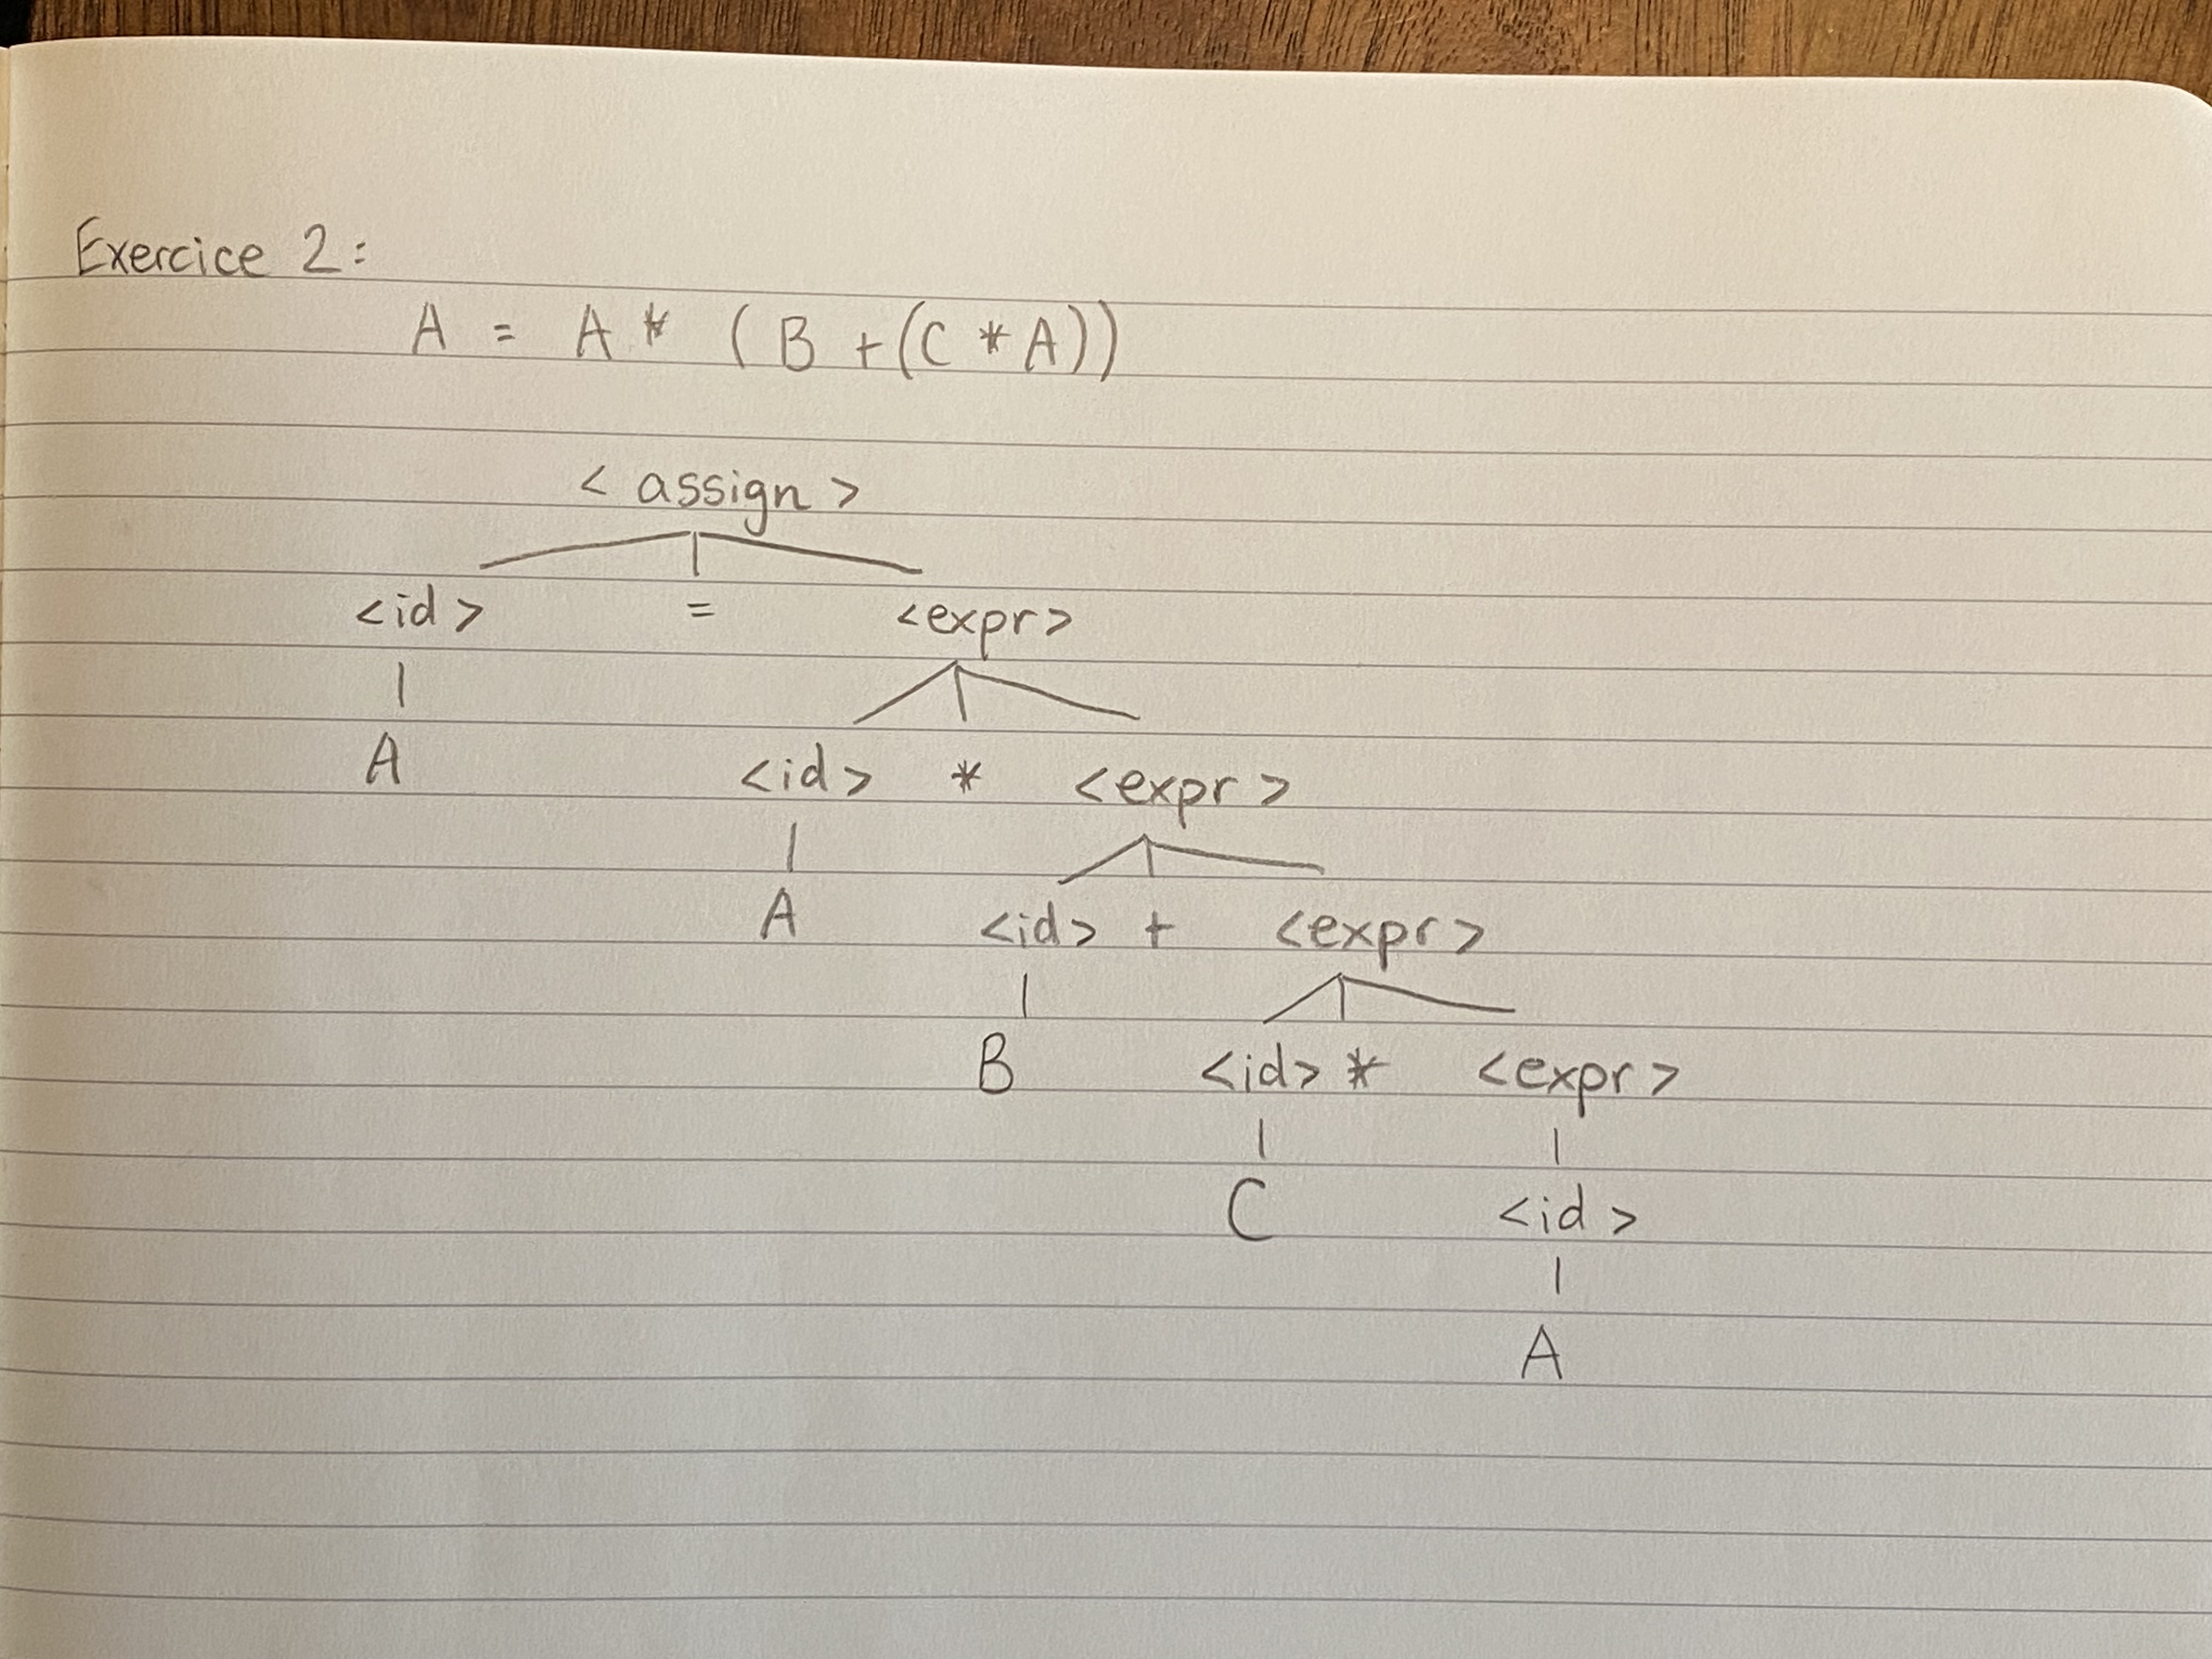 Exercice 2:
A = A * ( B + (C * A))
< assign >
<id> = <expr>
A
<id> * <expr>
A
<id> + <expr>
B
<id> * <expr>
C
<id>
A